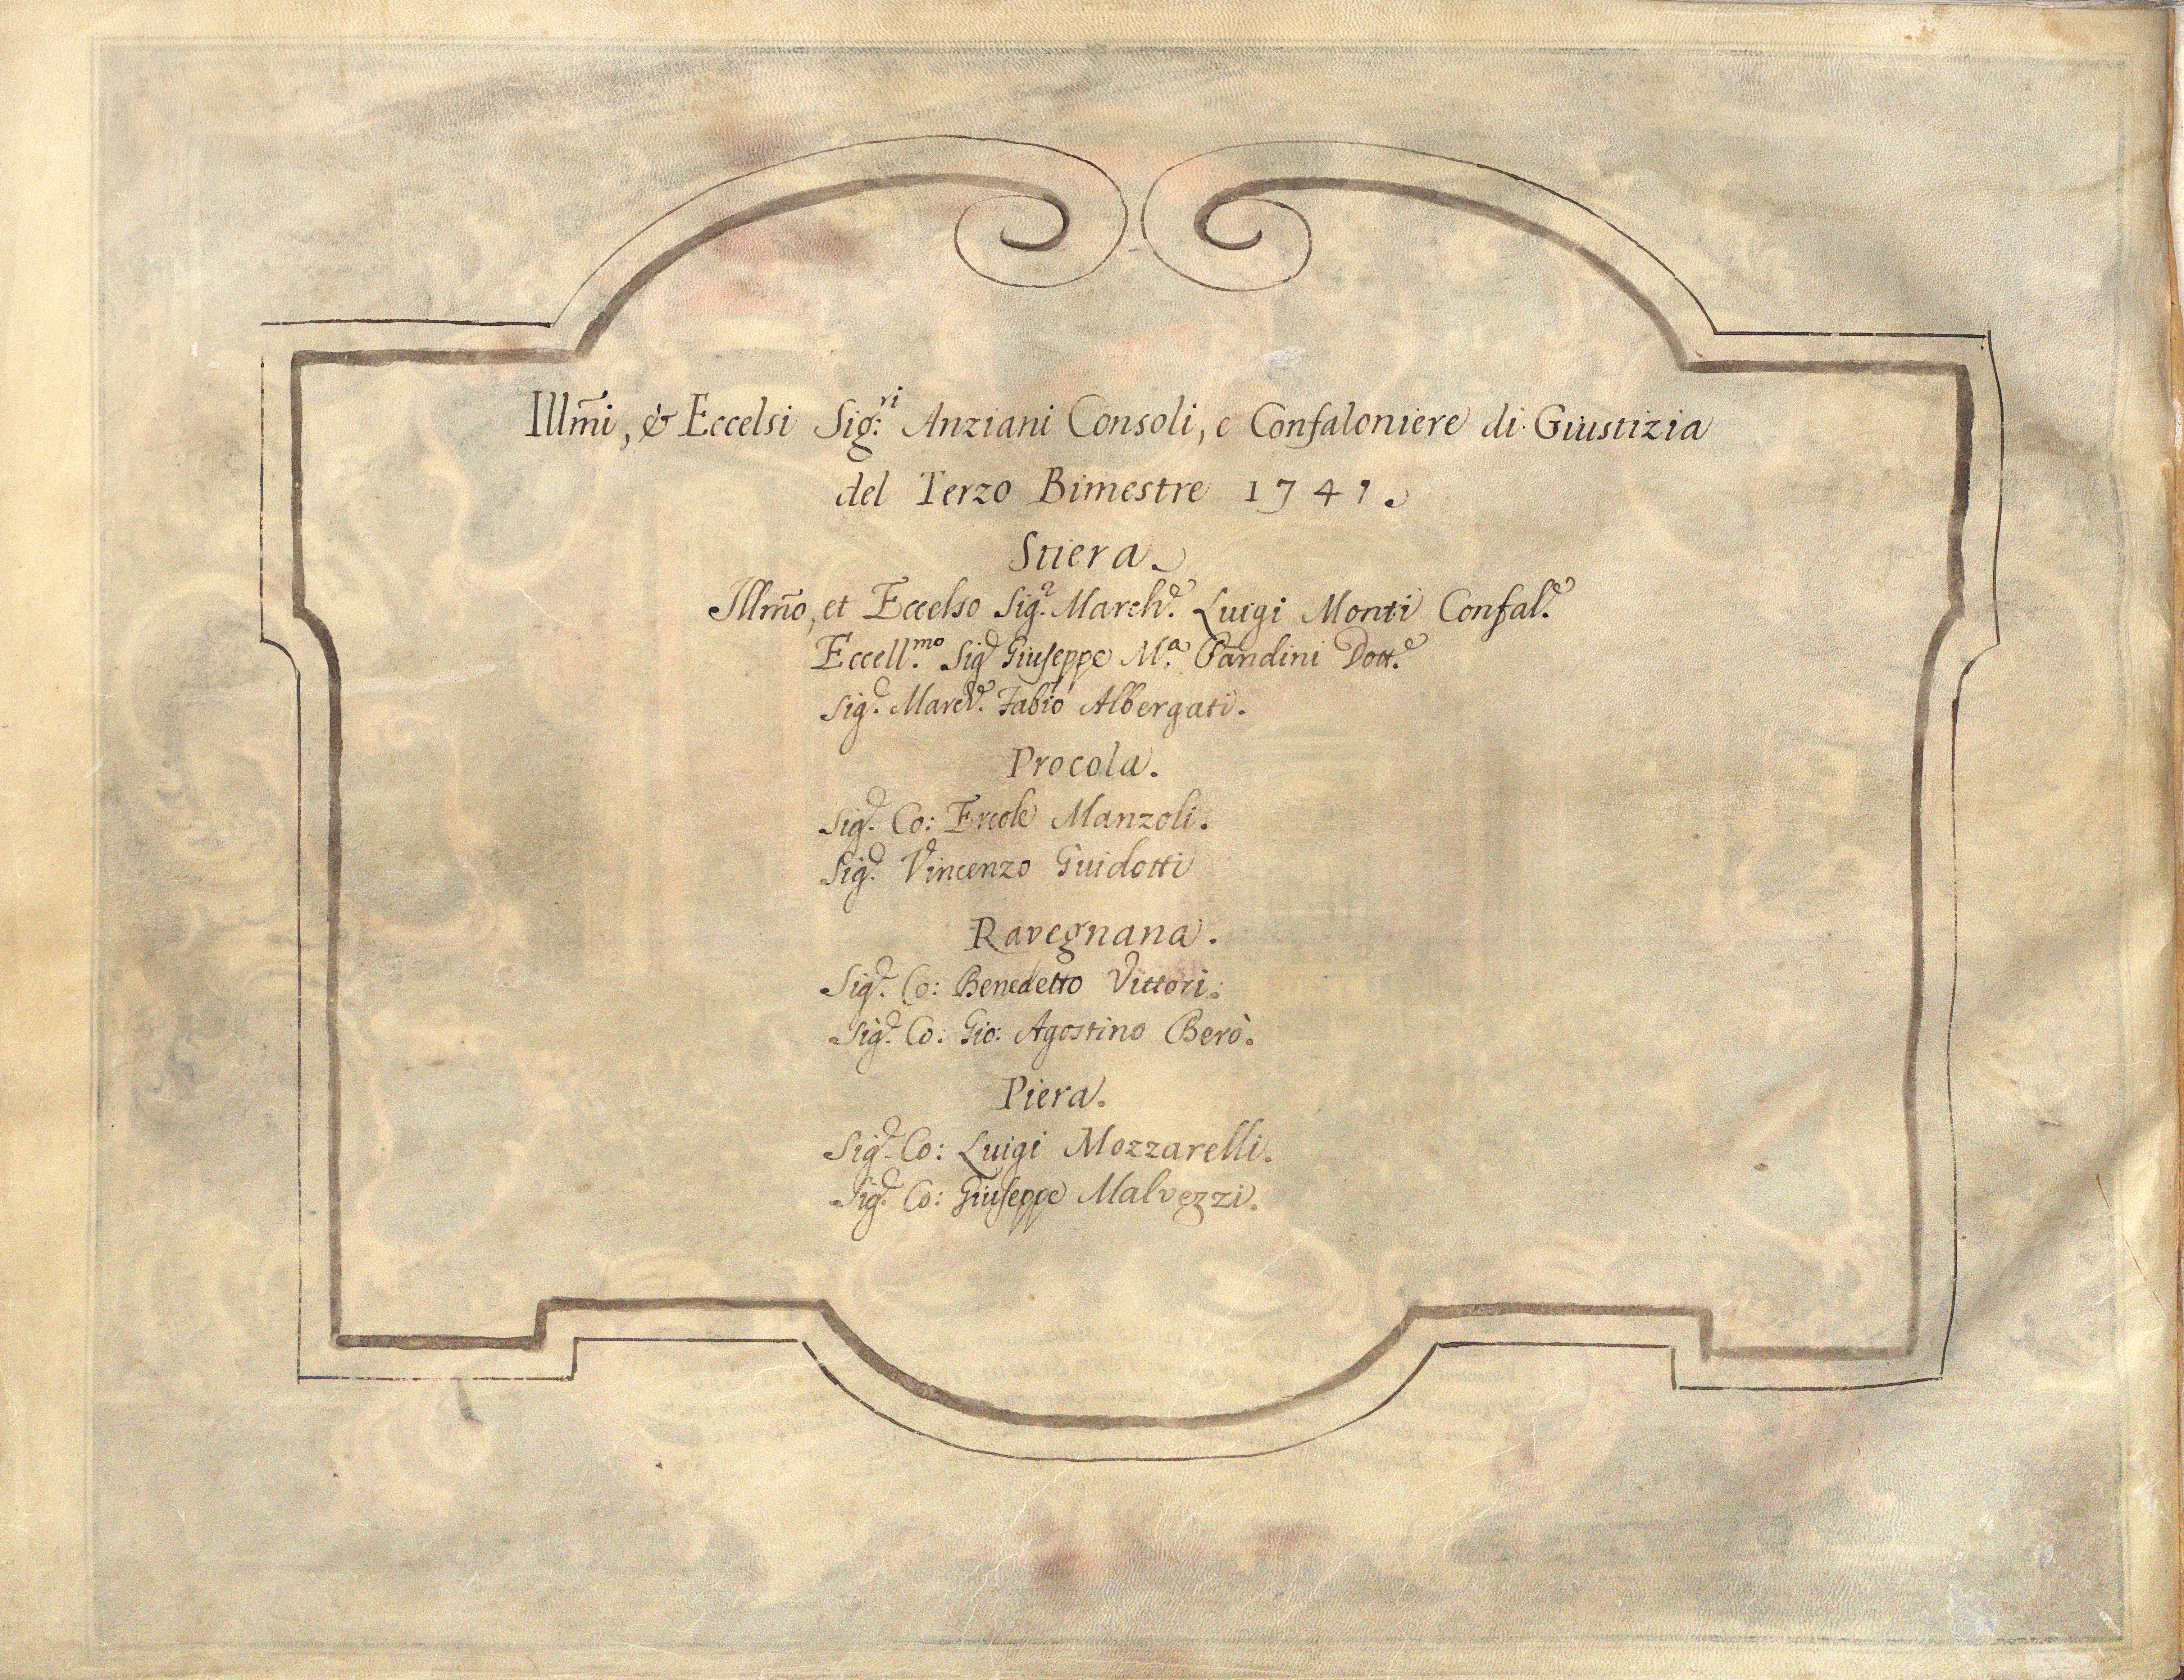 Illm̃i, & Eccelsi Sig:ri Anziani Consoli, e Confaloniere di Giustizia
del Terzo Bimestre 1741.
Stiera.
Illm̃o, et Eccelso Sig.r March.e Luigi Monti Confal.e
Eccell.mo Sig.r Giuseppe M.a Pandini Dott.e
Sig.r March.e Fabio Albergati.
Procola.
Sig.r Co: Ercole Manzoli.
Sig.r Vincenzo Guidotti
Ravegnana.
Sig.r Co: Benedetto Vittori.
Sig.r Co. Gio: Agostino Berò.
Piera.
Sig.r Co: Luigi Mozzarelli.
Sig.r Co: Giuseppe Malvezzi.